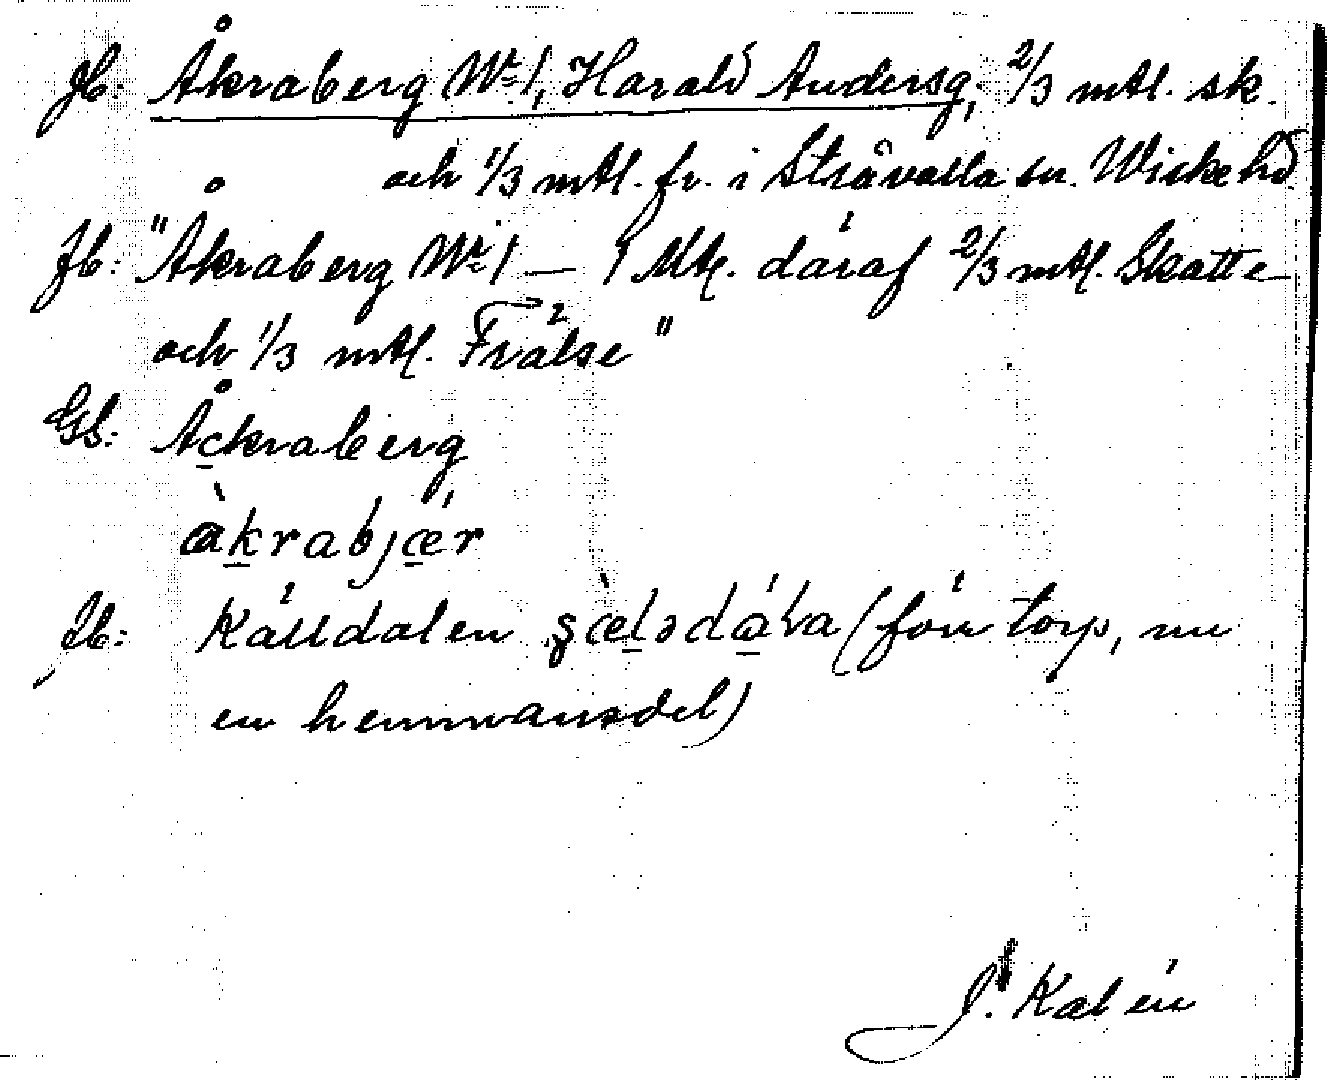 Jb: Åkraberg Nr 1, Harald Andersg, 2/3 mtl. sk.
och 1/3 mtl. fr. i Stråvalla sn. Wiske hd.
Jb: "Åkraberg Nr 1 — 1 Mtl. däraf 2/3 mtl. Skatte
och 1/3 mtl. Frälse"
Gb: Åckraberg
àkrabjǽr
Ub: Källdalen (förr torp, nu
en hemmansdel)
J. Kalén